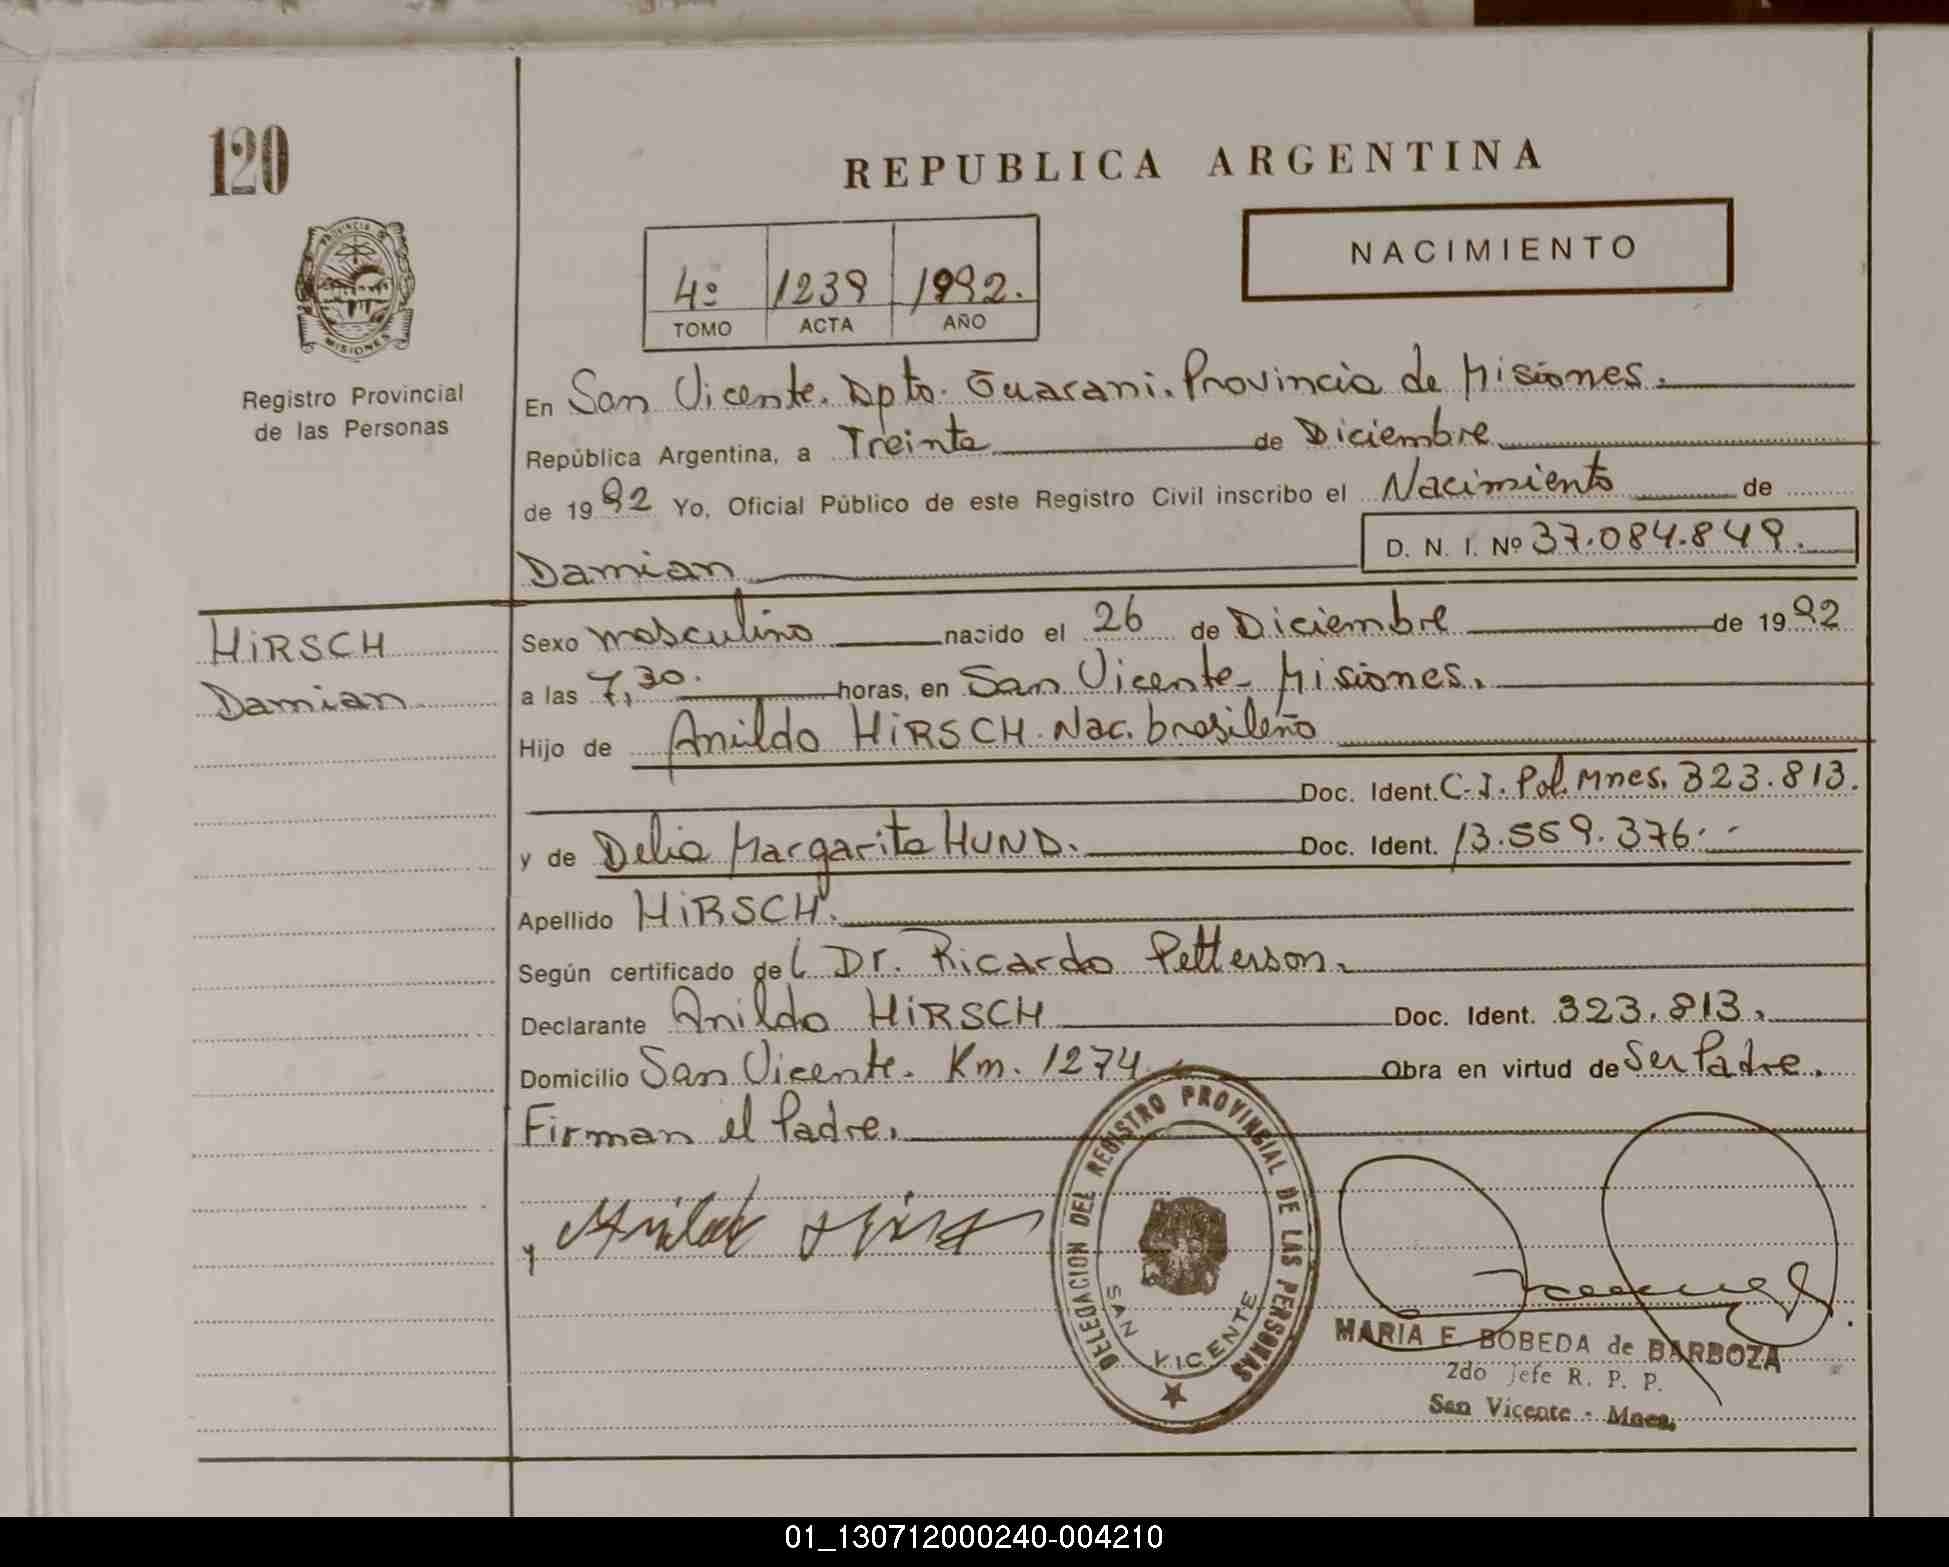 120
REPUBLICA ARGENTINA
NACIMIENTO
4º 1239 1992.
TOMO ACTA AÑO
PROVINCIA DE
MISIONES
Registro Provincial
de las Personas
En San Vicente. Dpto. Guarani. Provincia de Misiones.
República Argentina, a Treinta de Diciembre
de 1992 Yo, Oficial Público de este Registro Civil inscribo el Nacimiento de
Damian D. N. I. Nº 37.084.849.
HiRSCH
Damian
Sexo masculino nacido el 26 de Diciembre de 1992
a las 7,30. horas, en San Vicente- Misiones.
Hijo de Anildo HiRSCH. Nac. brasileño
Doc. Ident. C.I. Pol. Mnes. 323.813.
y de Delia Margarita HUND. Doc. Ident. 13.559.376.-
Apellido HiRSCH.
Según certificado del Dr. Ricardo Petterson.
Declarante Anildo HiRSCH Doc. Ident. 323.813.
Domicilio San Vicente. Km. 1274 Obra en virtud de Ser Padre.
Firman el Padre.
y Anildo Hirsch
DELEGACION DEL REGISTRO PROVINCIAL DE LAS PERSONAS
SAN VICENTE
MARIA E. BOBEDA de BARBOZA
2do Jefe R. P. P.
San Vicente - Mnes.
01_130712000240-004210